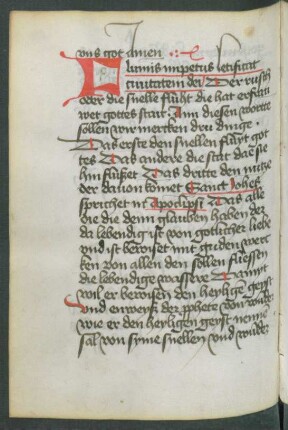 vns got amen
Fluminis impetus letificat
ciuitatem dei Der rusch
oder die snelle fluht die hat erfrau
wet gottes stat An diesen wortte
sollen wir mercken dru dinge
Das erste den snellen fluyt got
tes Das andere die stat dae sie
hin flußet Das dritte den nucze
der dauon komet Sanct Johes
sprichet in Apocalipsi Das alle
die die denn glauben haben der
da lebendig ist von gotlicher liebe
vnd ist beweiset mit guden werc
ken von allen den sollen fliessen
die lebendige wassere Damit
wil er bewisen den heylige geyst
Vnd entwerff der ppheta von wundr
wie er den heyligen geyst nenne
sal von syme snellen vnd wunder